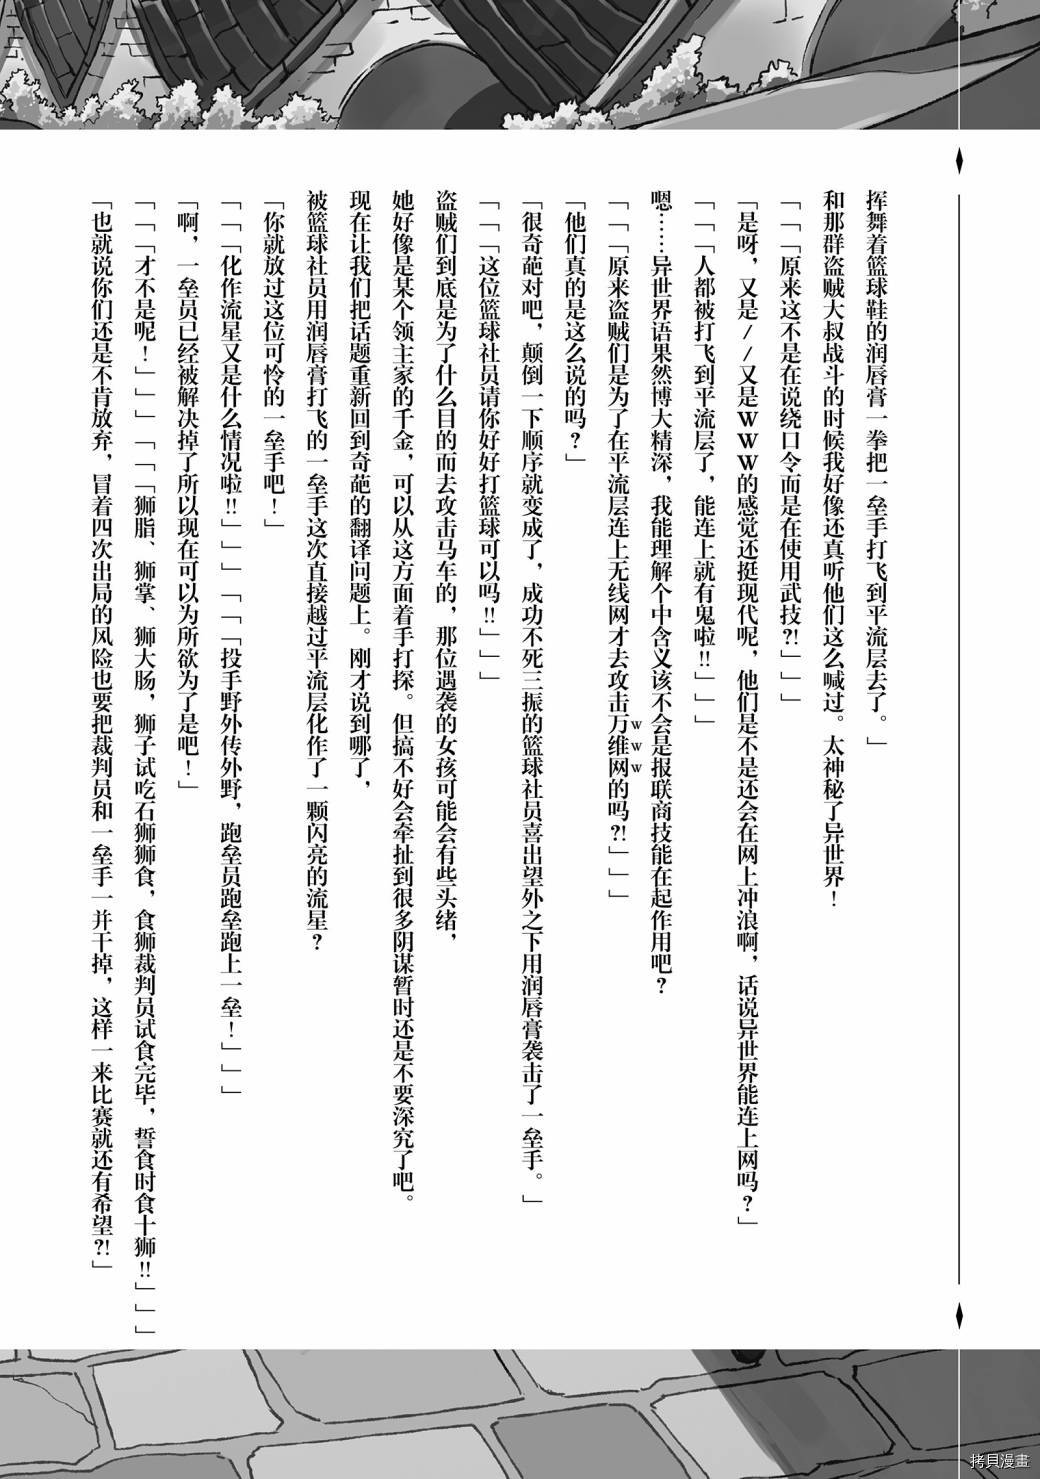 挥舞着篮球鞋的润唇膏一拳把一垒手打飞到平流层去了。」
和那群盗贼大叔战斗的时候我好像还真听他们这么喊过。太神秘了异世界！
「「「原来这不是在说绕口令而是在使用武技?!」」」
「是呀，又是//又是WWW的感觉还挺现代呢，他们是不是还会在网上冲浪啊，话说异世界能连上网吗？」
「「「人都被打飞到平流层了，能连上就有鬼啦!!」」」
嗯……异世界语果然博大精深，我能理解个中含义该不会是报联商技能在起作用吧？
「「「原来盗贼们是为了在平流层连上无线网才去攻击万维网的吗?!」」」
WWW
「他们真的是这么说的吗？」
「很奇葩对吧，颠倒一下顺序就变成了，成功不死三振的篮球社员喜出望外之下用润唇膏袭击了一垒手。」
「「「这位篮球社员请你好好打篮球可以吗!!」」」
盗贼们到底是为了什么目的而去攻击马车的，那位遇袭的女孩可能会有些头绪，
她好像是某个领主家的千金，可以从这方面着手打探。但搞不好会牵扯到很多阴谋暂时还是不要深究了吧。
现在让我们把话题重新回到奇葩的翻译问题上。刚才说到哪了，
被篮球社员用润唇膏打飞的一垒手这次直接越过平流层化作了一颗闪亮的流星？
「你就放过这位可怜的一垒手吧！」
「「「化作流星又是什么情况啦!!」」」「「「投手野外传外野，跑垒员跑垒跑上一垒！」」」
「啊，一垒员已经被解决掉了所以现在可以为所欲为了是吧！」
「「「才不是呢！」」」「「「狮脂、狮掌、狮大肠，狮子试吃石狮狮食，食狮裁判员试食完毕，誓食时食十狮!!」」」
「也就说你们还是不肯放弃，冒着四次出局的风险也要把裁判员和一垒手一并干掉，这样一来比赛就还有希望?!」
拷貝漫畫